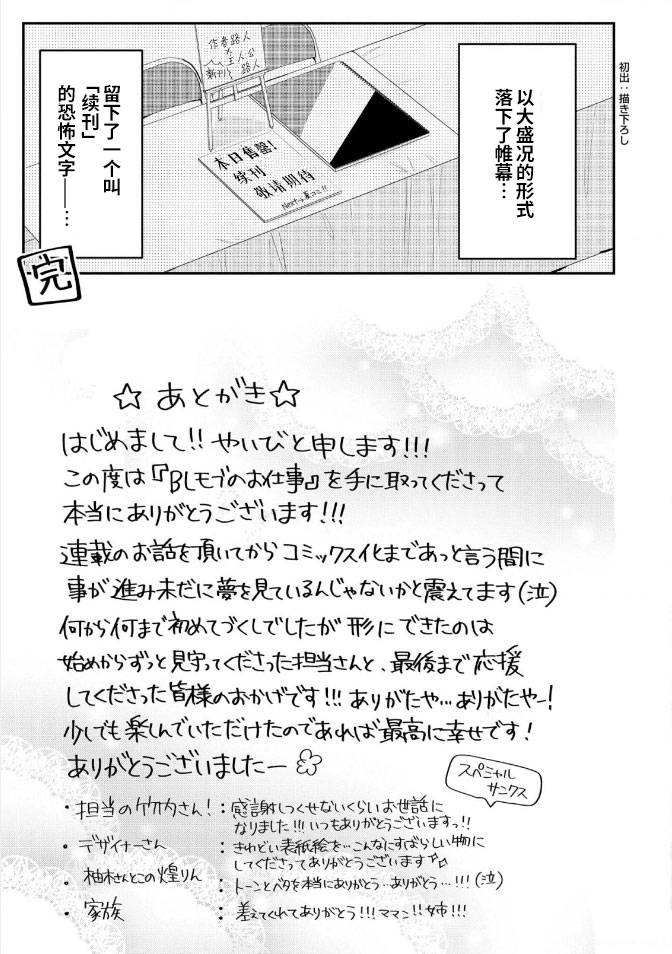 初出：描き下ろし
以大盛况的形式
落下了帷幕…
作者路人
×
主人公
新刊 路人
本日售罄！
续刊
敬请期待
留下了一个叫
「续刊」
的恐怖文字――…
完
☆ あとがき ☆
はじめまして!! やいびと申します!!!
この度は『BLモブのお仕事』を手に取ってくださって
本当にありがとうございます!!!
連載のお話を頂いてからコミックス化まであっと言う間に
事が進み未だに夢を見ているんじゃないかと震えてます(泣)
何から何まで初めてづくしでしたが形にできたのは
始めからずっと見守ってくださった担当さんと、最後まで応援
してくださった皆様のおかげです!!! ありがたや…ありがたやー!
少しでも楽しんでいただけたのであれば最高に幸せです!
ありがとうございましたー
スペシャル
サンクス
・担当のケケタさん!：感謝しつくせないくらいお世話に
なりました!!! いつもありがとうございますっ!!
・デザイナーさん：きわどい表紙絵を…こんなにすばらしい物に
してくださってありがとうございます
・柚木さんとこの煌りん：トーンとベタを本当にありがとう…ありがとう…!!! (泣)
・家族：差えてくれてありがとう!!! ママン!! 姉!!!